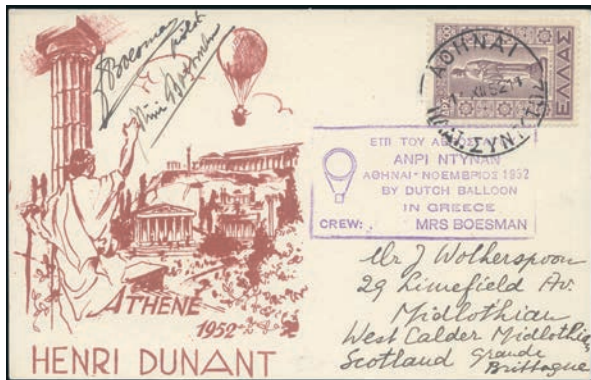 Boesman
pilot
Nini Boesman
ΑΘΗΝΑΙ
ΕΛΛΑΣ
ΕΠΙ ΤΟΥ
ΑΝΡΙ ΝΤΥΝΑΝ
ΑΘΗΝΑΙ - ΝΟΕΜΒΡΙΟΣ 1952
BY DUTCH BALLOON
IN GREECE
CREW: MRS BOESMAN
Mr J Wotherspoon
29 Limefield Av.
Midlothian
West Calder Midlothian
Scotland Grande
Brittagne
ATHENE
1952
HENRI DUNANT